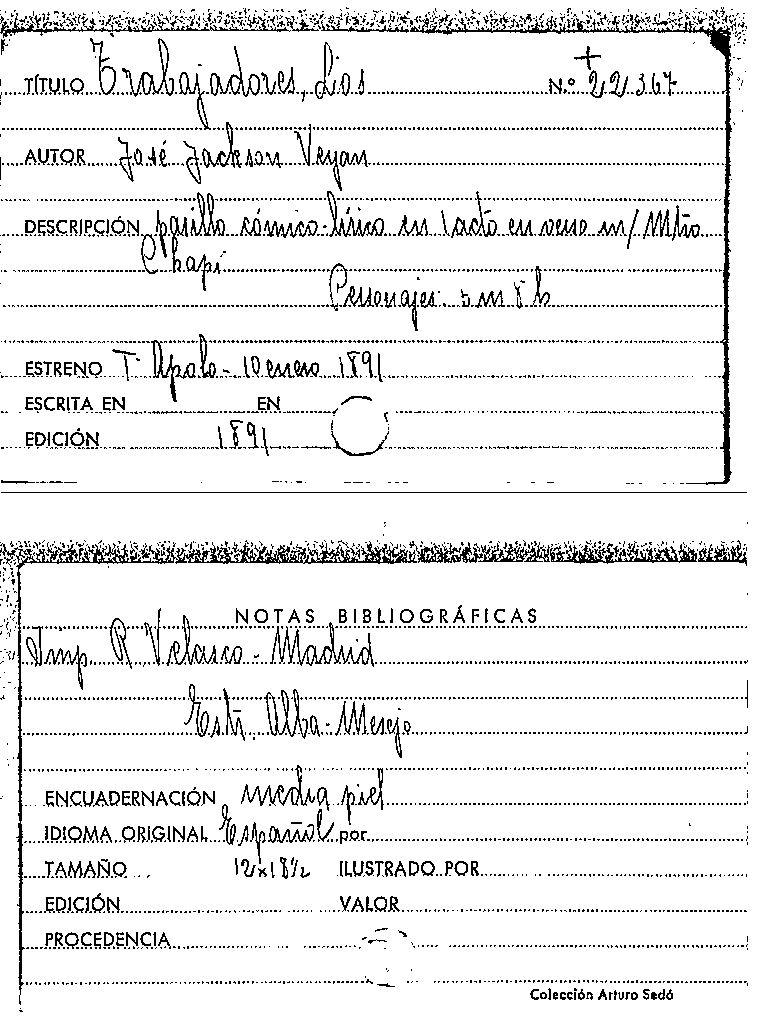 TÍTULO Trabajadores, Los Nº + 22367
AUTOR José Jackson Veyan
DESCRIPCIÓN pasillo cómico-lírico en 1 acto en verso m/ Mtro
Chapí
Personajes: 5 m 8 h
ESTRENO T. Apolo - 10 enero 1891
ESCRITA EN EN
EDICIÓN 1891
NOTAS BIBLIOGRÁFICAS
Imp. R. Velasco - Madrid
Estr. Alba - Mesejo
ENCUADERNACIÓN media piel
IDIOMA ORIGINAL Español por
TAMAÑO 12x18½ ILUSTRADO POR
EDICIÓN VALOR
PROCEDENCIA
Colección Arturo Sedó